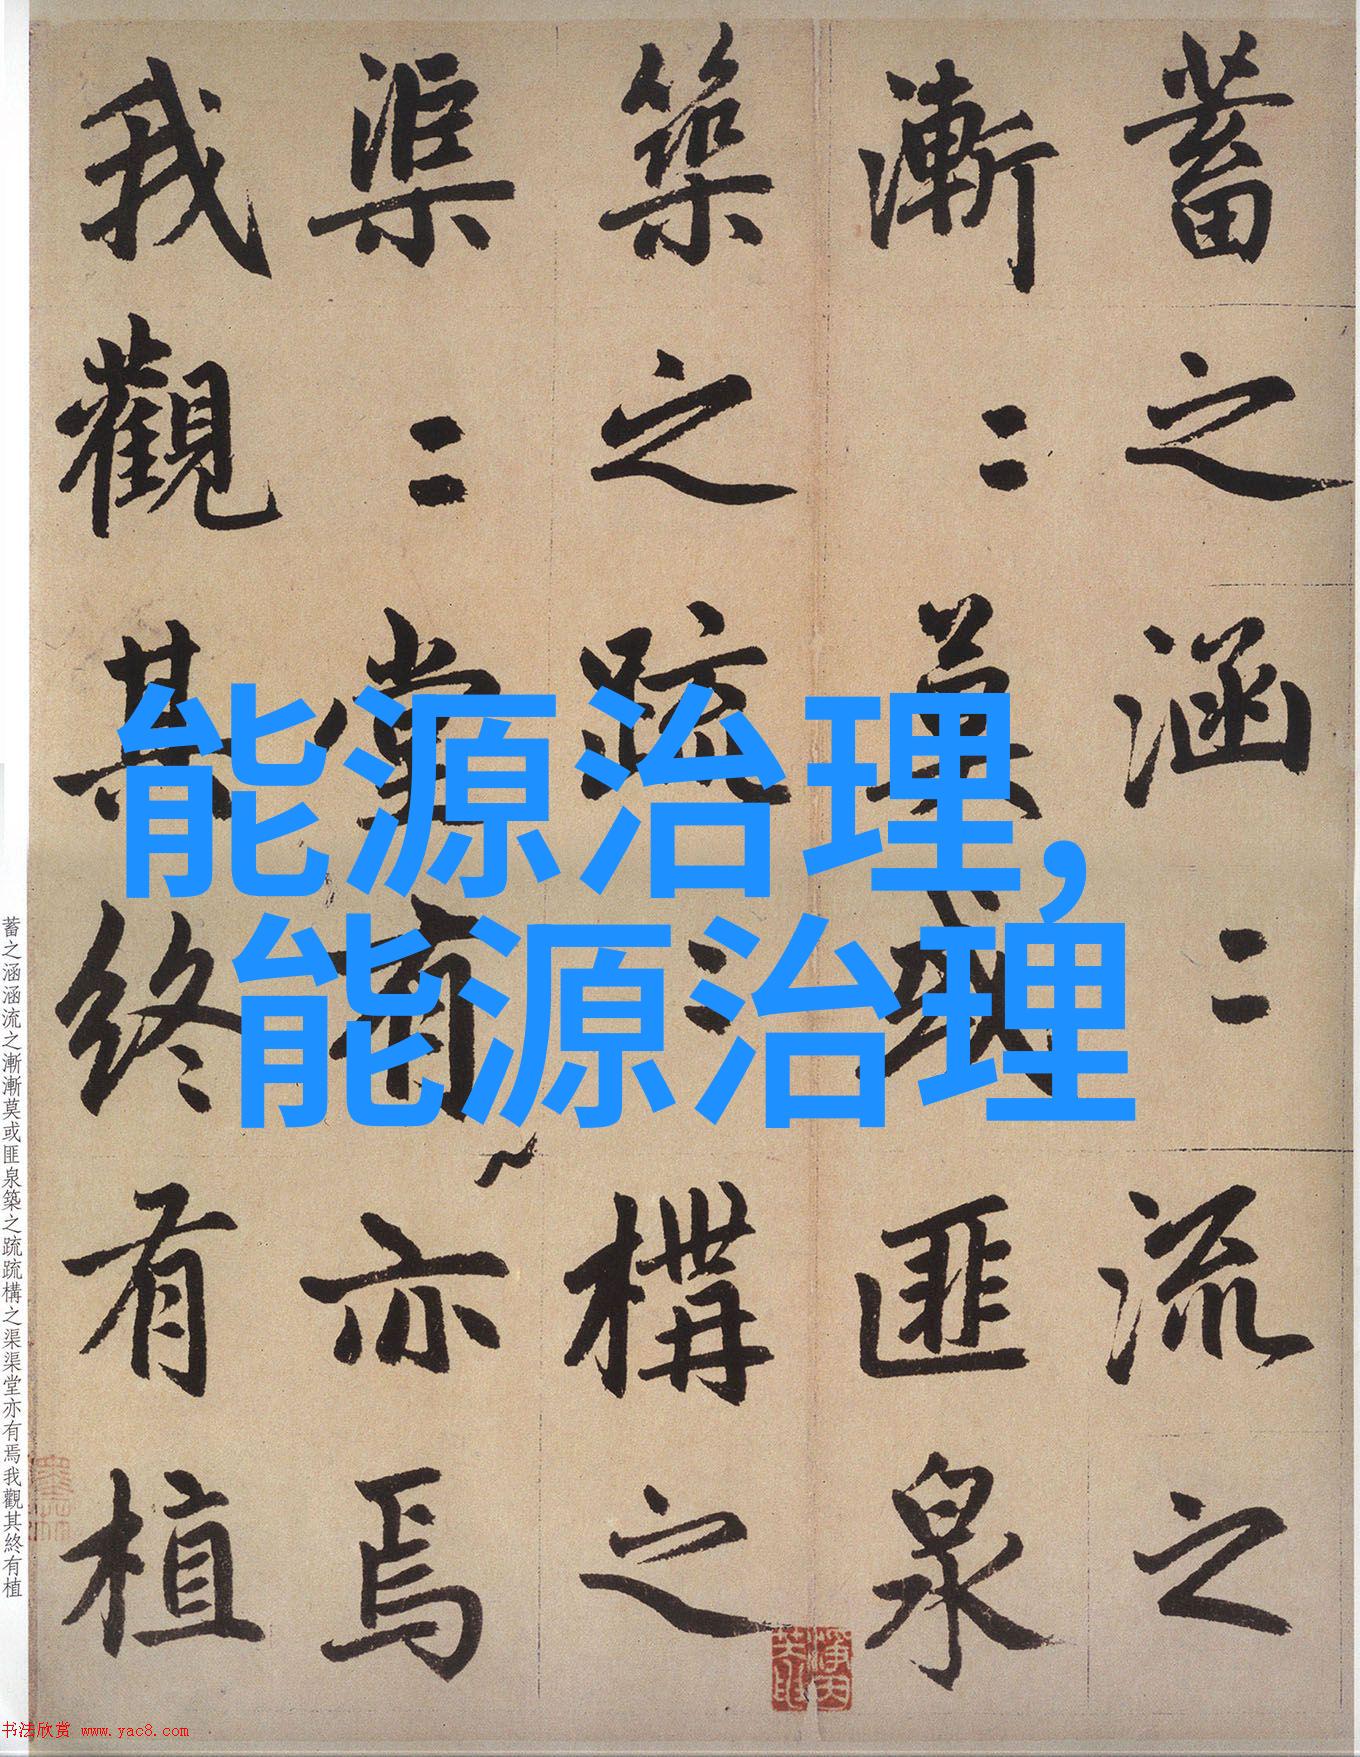 蓄之涵二流之
漸二莫或匪泉
築之疏二構之
渠二堂有亦焉
我觀其終有植
能源治理,
能源治理
蓄之涵涵流之漸漸莫或匪泉築之疏疏構之渠渠堂亦有焉我觀其終有植
书法欣赏 www.yac8.com